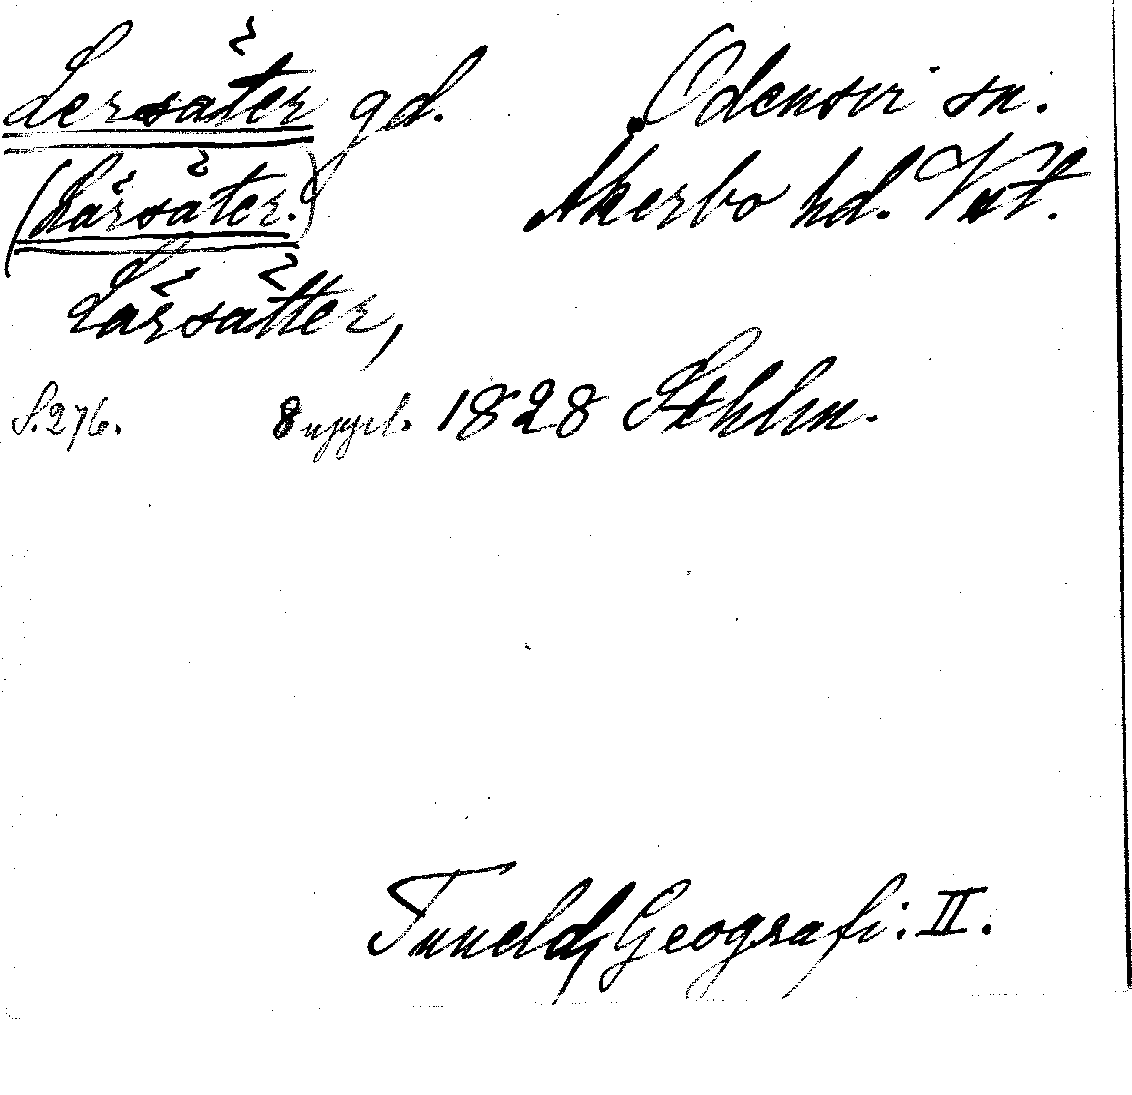 Lersäter gd. Odensvi sn.
(Lärsäter.) Åkerbo hd. Vstm.
Lärsätter,
S. 276. 8 uppl. 1828 Sthlm.
Tunelds Geografi: II.